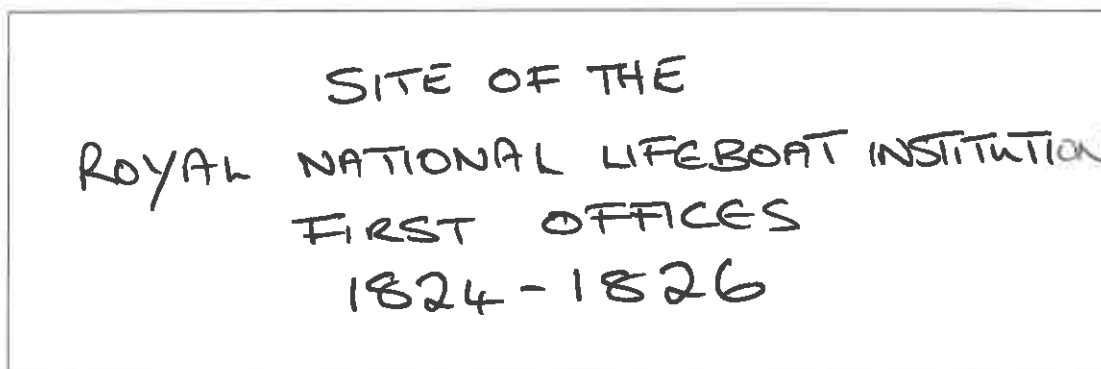 SITE OF THE
ROYAL NATIONAL LIFEBOAT INSTITUTION
FIRST OFFICES
1824-1826